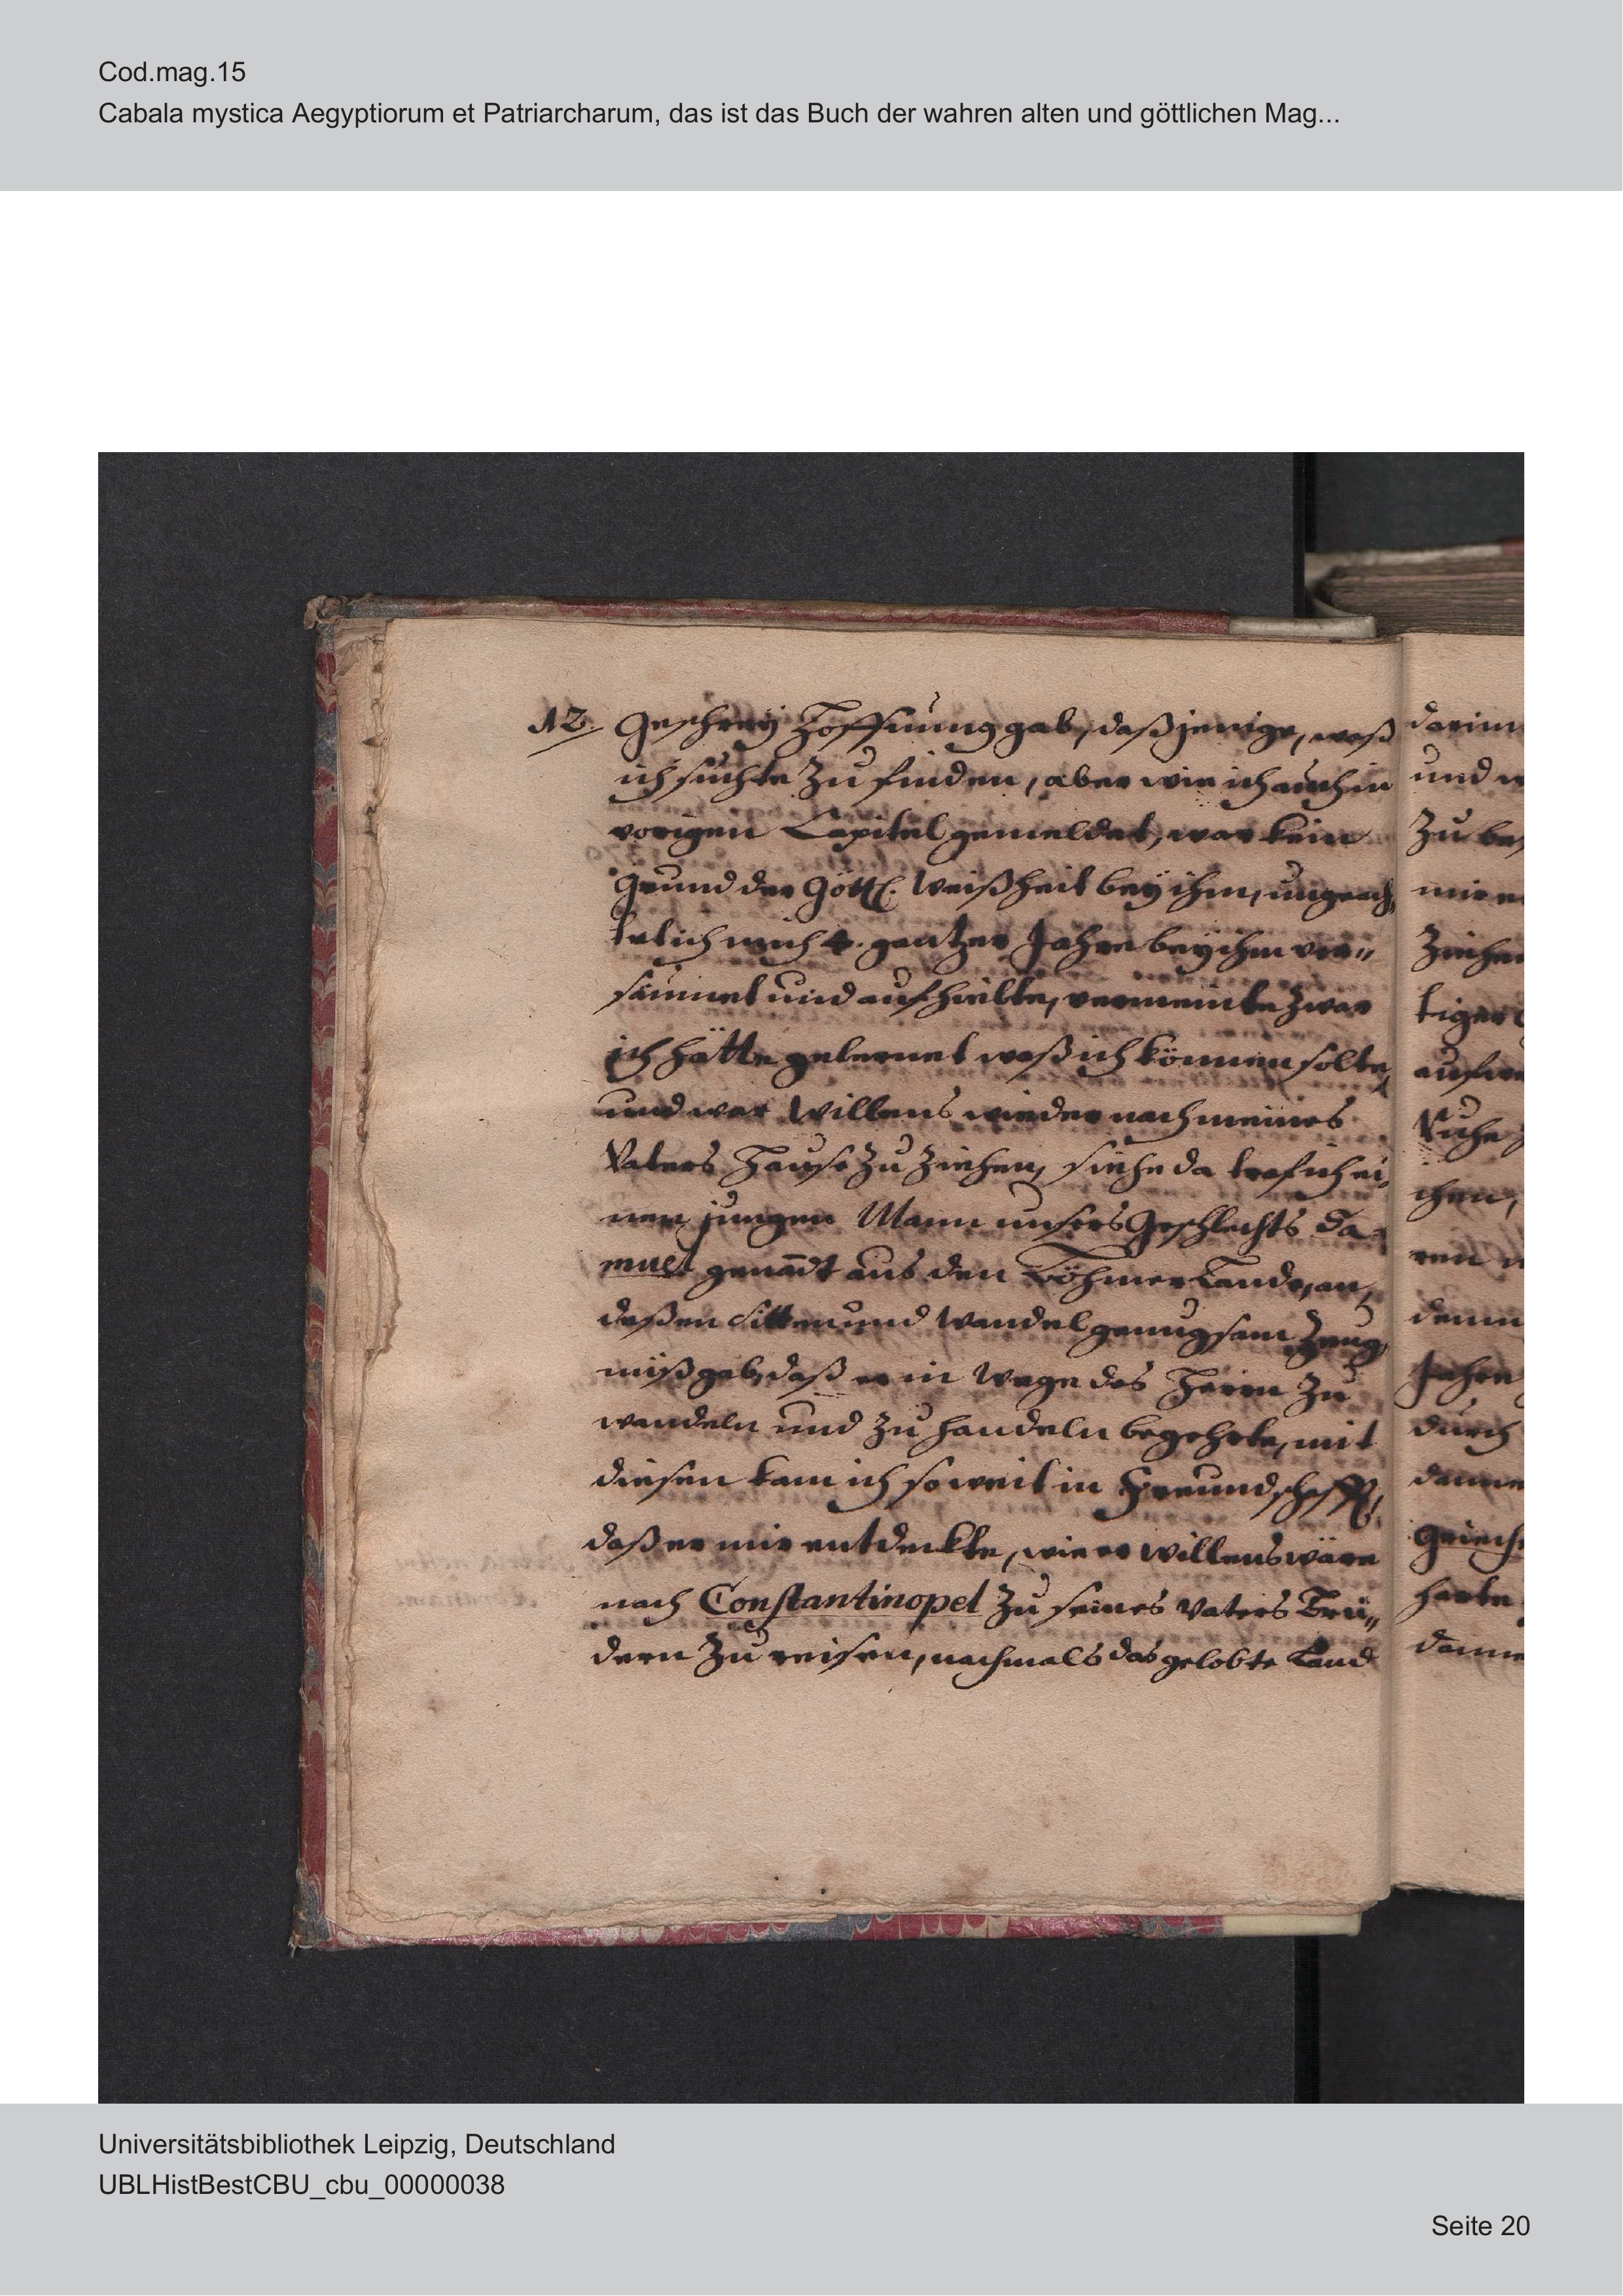 Cod.mag.15
Cabala mystica Aegyptiorum et Patriarcharum, das ist das Buch der wahren alten und göttlichen Mag...
12. Geschreÿ Hoffnung gab, daßjenige, waß
ich suchte zu finden, aber wie ich auch in
vorigen Capitel gemeldet, war kein
Grund der Göttl. Weißheit beÿ ihm, ungeach,
tet ich mich 4. gantzer Jahre bey ihm ver„
säumet und aufhielte, vermeinte zwar
ich hätte gelernet waß ich können solte,
und war Willens wieder nach meines
Vaters Hause zu ziehen, siehe da traf ich ei,
nen jungen Mann unsers Geschlechts Sa„
muel genādt aus den Böhmer Lande, an,
deßen Sitten und Wandel genugsam Zeug
nüß gab, daß er in Wege des Herrn zu
wandeln und zu handeln begehrte, mit
diesen kam ich so weit in Freundschafft,
daß er mir entdeckte, wie er willens wäre
nach Constantinopel zu seines Vaters Brü„
dern zu reisen, nachmals das gelobte Land
darinn
und
zu
mir
ziehen
tiger
Ruhe
chen,
ren
denn
Jahre
durch
Griech
harte
Universitätsbibliothek Leipzig, Deutschland
UBLHistBestCBU_cbu_00000038
Seite 20